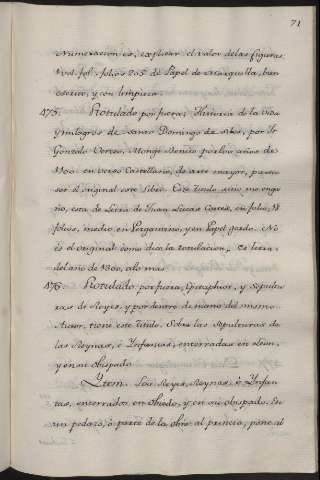 71
Numeracion es, explicar el valor de las figuras.
1 vol. fol. folios 205 de Papel de Marquilla, bien
escrito, y con limpieza.
475. Rotulado por fuera; Historia de la Vida
y milagros de Santo Domingo de Silos, por Fr.
Gonzalo Verceo, Monge Benito por los años de
1300: en verso Castellano, de arte mayor, parece
ser el original este Libro. Este titulo, si no me enga-
ño, es de Letra de Juan Lucas Cortès, en folio,
folios, medio en Pergamino, y en Papel gordo. No
es el original como dice la rotulacion, es letra
del año de 1300, a lo mas.
476. Rotulado por fuera, Epitaphios, y Sepultu-
ras de Reyes, y por dentro de mano del mismo
Autor, tiene este titulo. Sobre las Sepulturas de
las Reynas, è Ynfantas, enterradas en Leon,
y en su Obispado.
Ytem. Los Reyes, Reynas, è Ynfan-
tas, enterrados en Obiedo, y en su Obispado. En
un pedazo, ò parte de la obra al principio, pone al